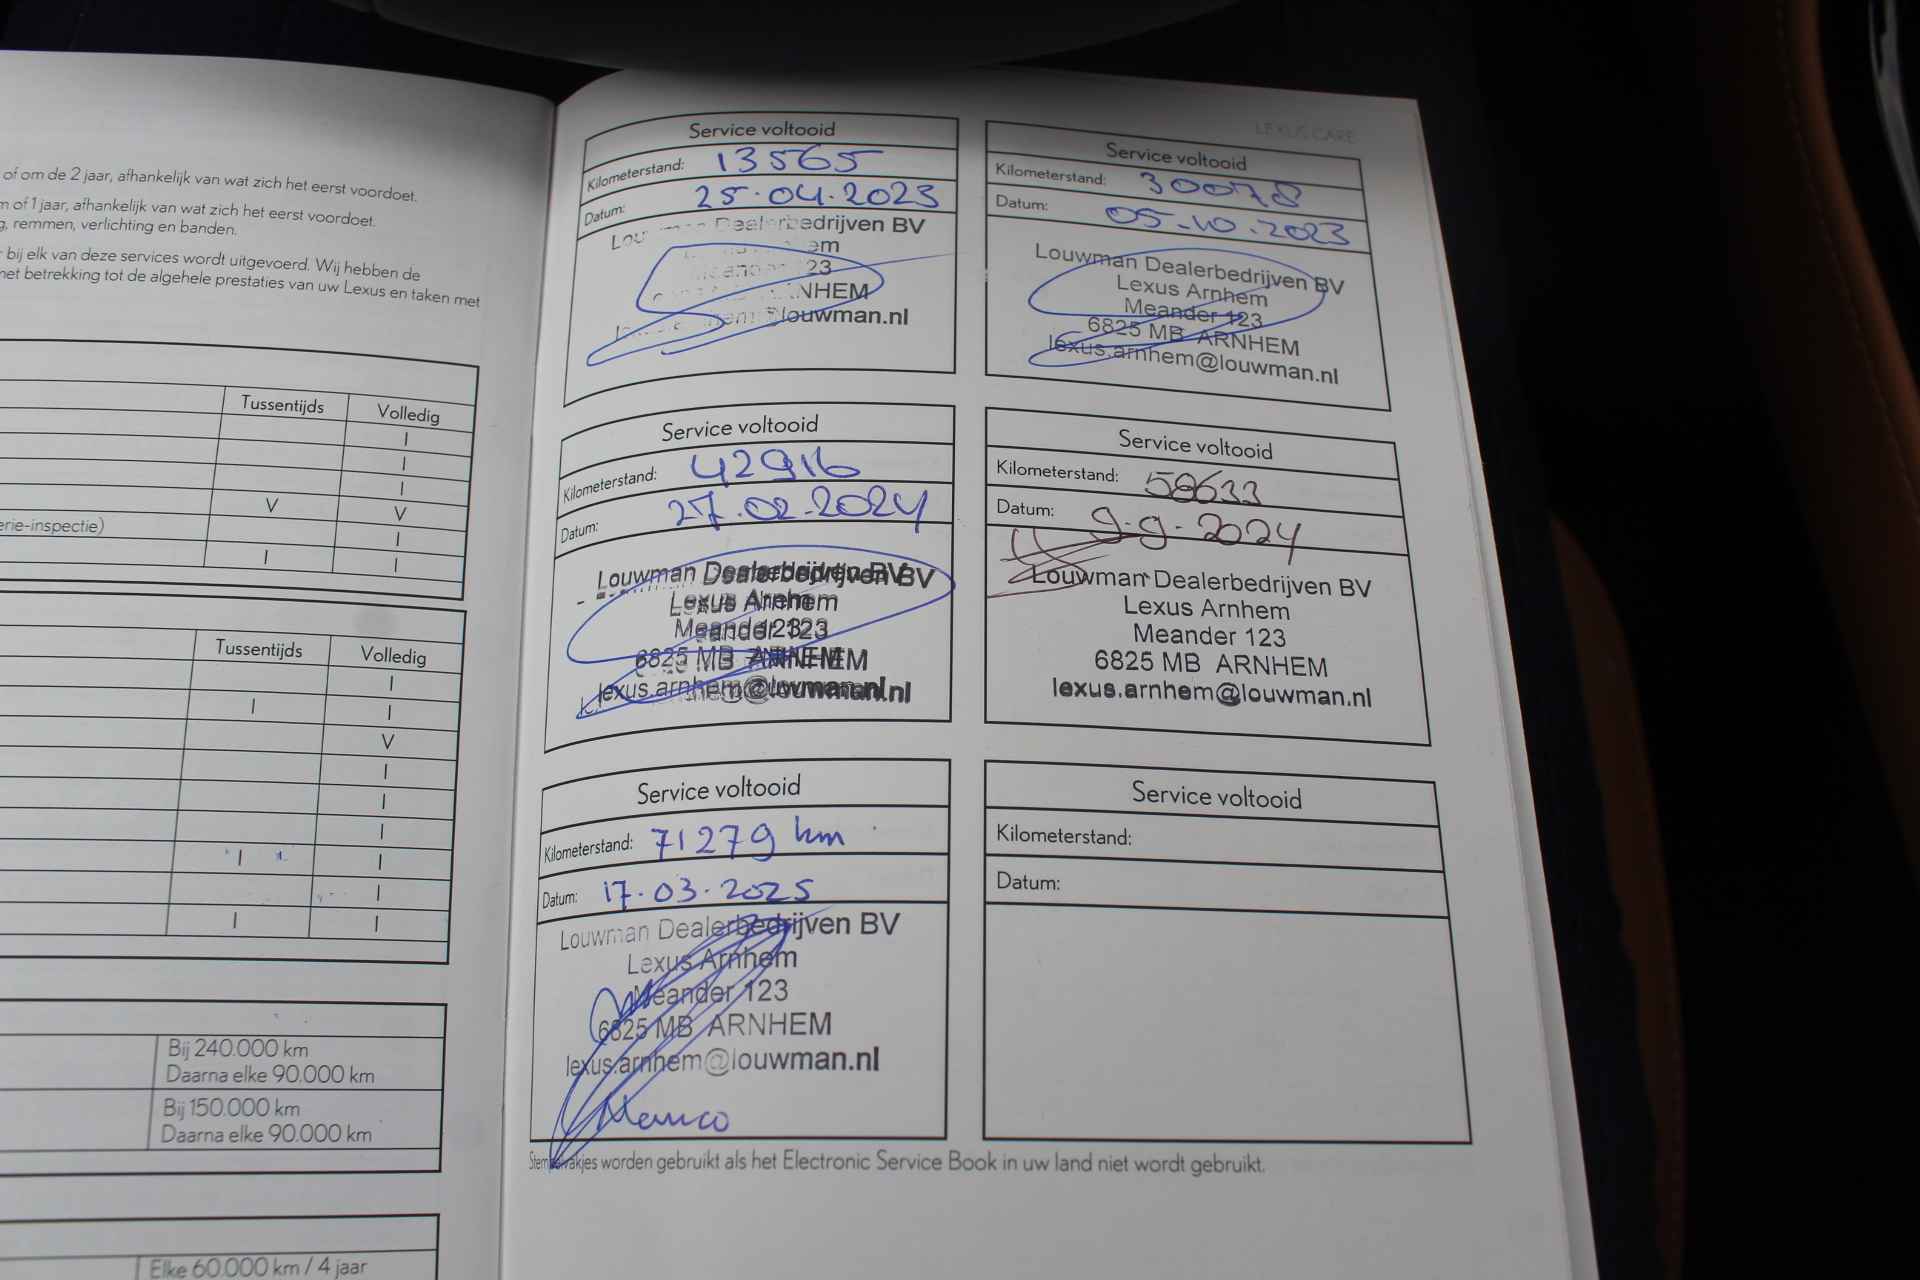 of om de 2 jaar, afhankelijk van wat zich het eerst voordoet.
m of 1 jaar, afhankelijk van wat zich het eerst voordoet.
g, remmen, verlichting en banden.
r bij elk van deze services wordt uitgevoerd. Wij hebben de
met betrekking tot de algehele prestaties van uw Lexus en taken met
Tussentijds Volledig
I
I
I
V V
erie-inspectie) I
I I
Tussentijds Volledig
I
I I
V
I
I
I
I I
I
I I
Bij 240.000 km
Daarna elke 90.000 km
Bij 150.000 km
Daarna elke 90.000 km
Elke 60.000 km / 4 jaar
LEXUS CARE
Service voltooid
Kilometerstand: 13565
Datum: 25.04.2023
Louwman Dealerbedrijven BV
Meander 123
ARNHEM
@louwman.nl
Service voltooid
Kilometerstand: 30078
Datum: 05-10.2023
Louwman Dealerbedrijven BV
Lexus Arnhem
Meander 123
6825 MB ARNHEM
lexus.arnhem@louwman.nl
Service voltooid
Kilometerstand: 42916
Datum: 27.02.2024
Louwman Dealerbedrijven BV
Lexus Arnhem
Meander 123
6825 MB ARNHEM
lexus.arnhem@louwman.nl
Service voltooid
Kilometerstand: 58633
Datum: 9-9-2024
Louwman Dealerbedrijven BV
Lexus Arnhem
Meander 123
6825 MB ARNHEM
lexus.arnhem@louwman.nl
Service voltooid
Kilometerstand: 71279 km
Datum: 17.03.2025
Louwman Dealerbedrijven BV
Lexus Arnhem
Meander 123
6825 MB ARNHEM
lexus.arnhem@louwman.nl
Service voltooid
Kilometerstand:
Datum:
worden gebruikt als het Electronic Service Book in uw land niet wordt gebruikt.